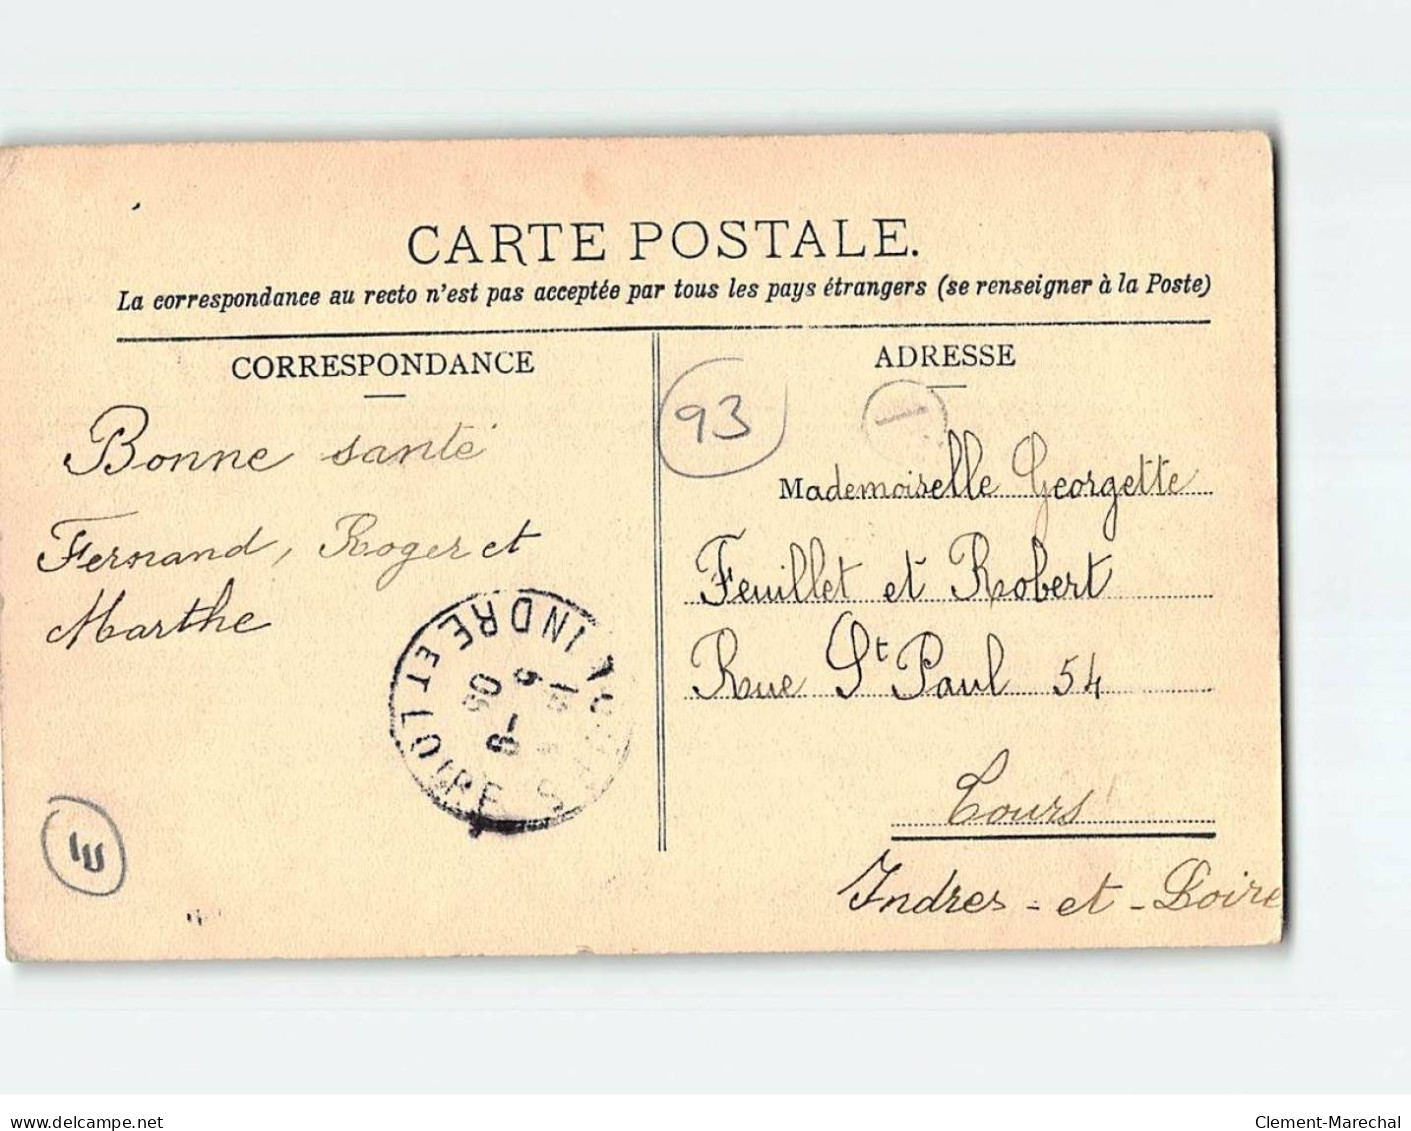 CARTE POSTALE.
La correspondance au recto n'est pas acceptée par tous les pays étrangers (se renseigner à la Poste)
CORRESPONDANCE
Bonne santé
Fernand, Roger et
Marthe
INDRE ET LOIRE
ADRESSE
93
Mademoiselle Georgette
Feuillet et Robert
Rue St Paul 54
Tours
Indres-et-Loire
delcampe.net
Clement-Marechal